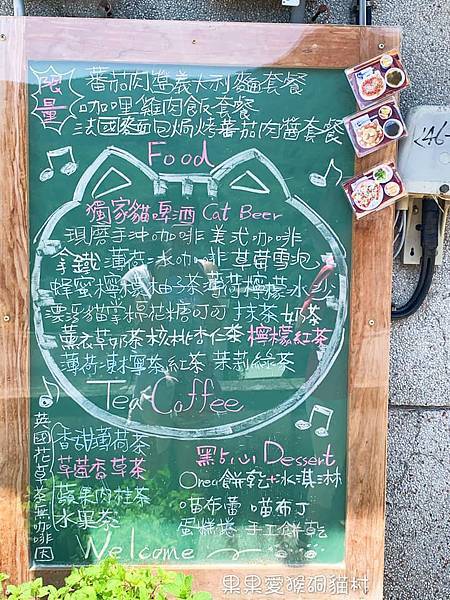 限量
蕃茄肉醬義大利麵套餐
咖哩雞肉飯套餐
法國麵包焗烤蕃茄肉醬套餐
Food
獨家貓啤酒 Cat Beer
現磨手沖咖啡 美式咖啡
拿鐵 薄荷冰咖啡 草莓雪泡
蜂蜜檸檬 柚子茶 薄荷檸檬冰沙
貓掌棉花糖可可 抹茶奶茶
薰衣草奶茶 核桃杏仁茶 檸檬紅茶
薄荷 茶 紅茶 茉莉綠茶
Tea Coffee
英國花草茶無咖啡因
香甜薄荷茶
草莓香草茶
蘋果肉桂茶
水果茶
點心 Dessert
Oreo餅乾+冰淇淋
喵布蕾 喵布丁
蛋糕捲 手工餅乾
Welcome
果果愛猴硐貓村